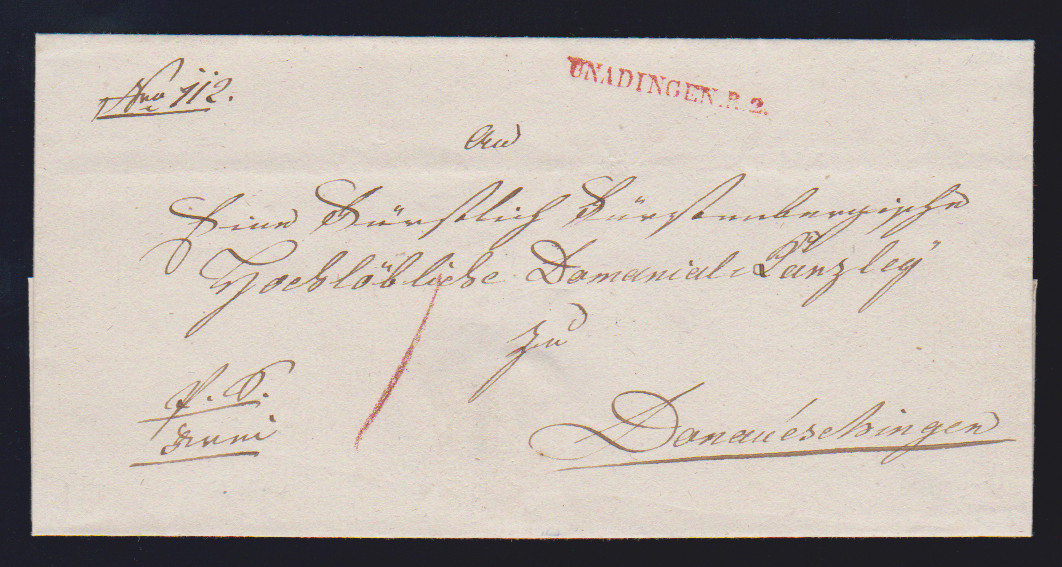 Nro 112.
UNADINGEN.R.2.
An
Eine Fürstlich Fürstenbergische
Hochlöbliche Domanial-Kanzley
zu
P. S.
frei
Donauéschingen